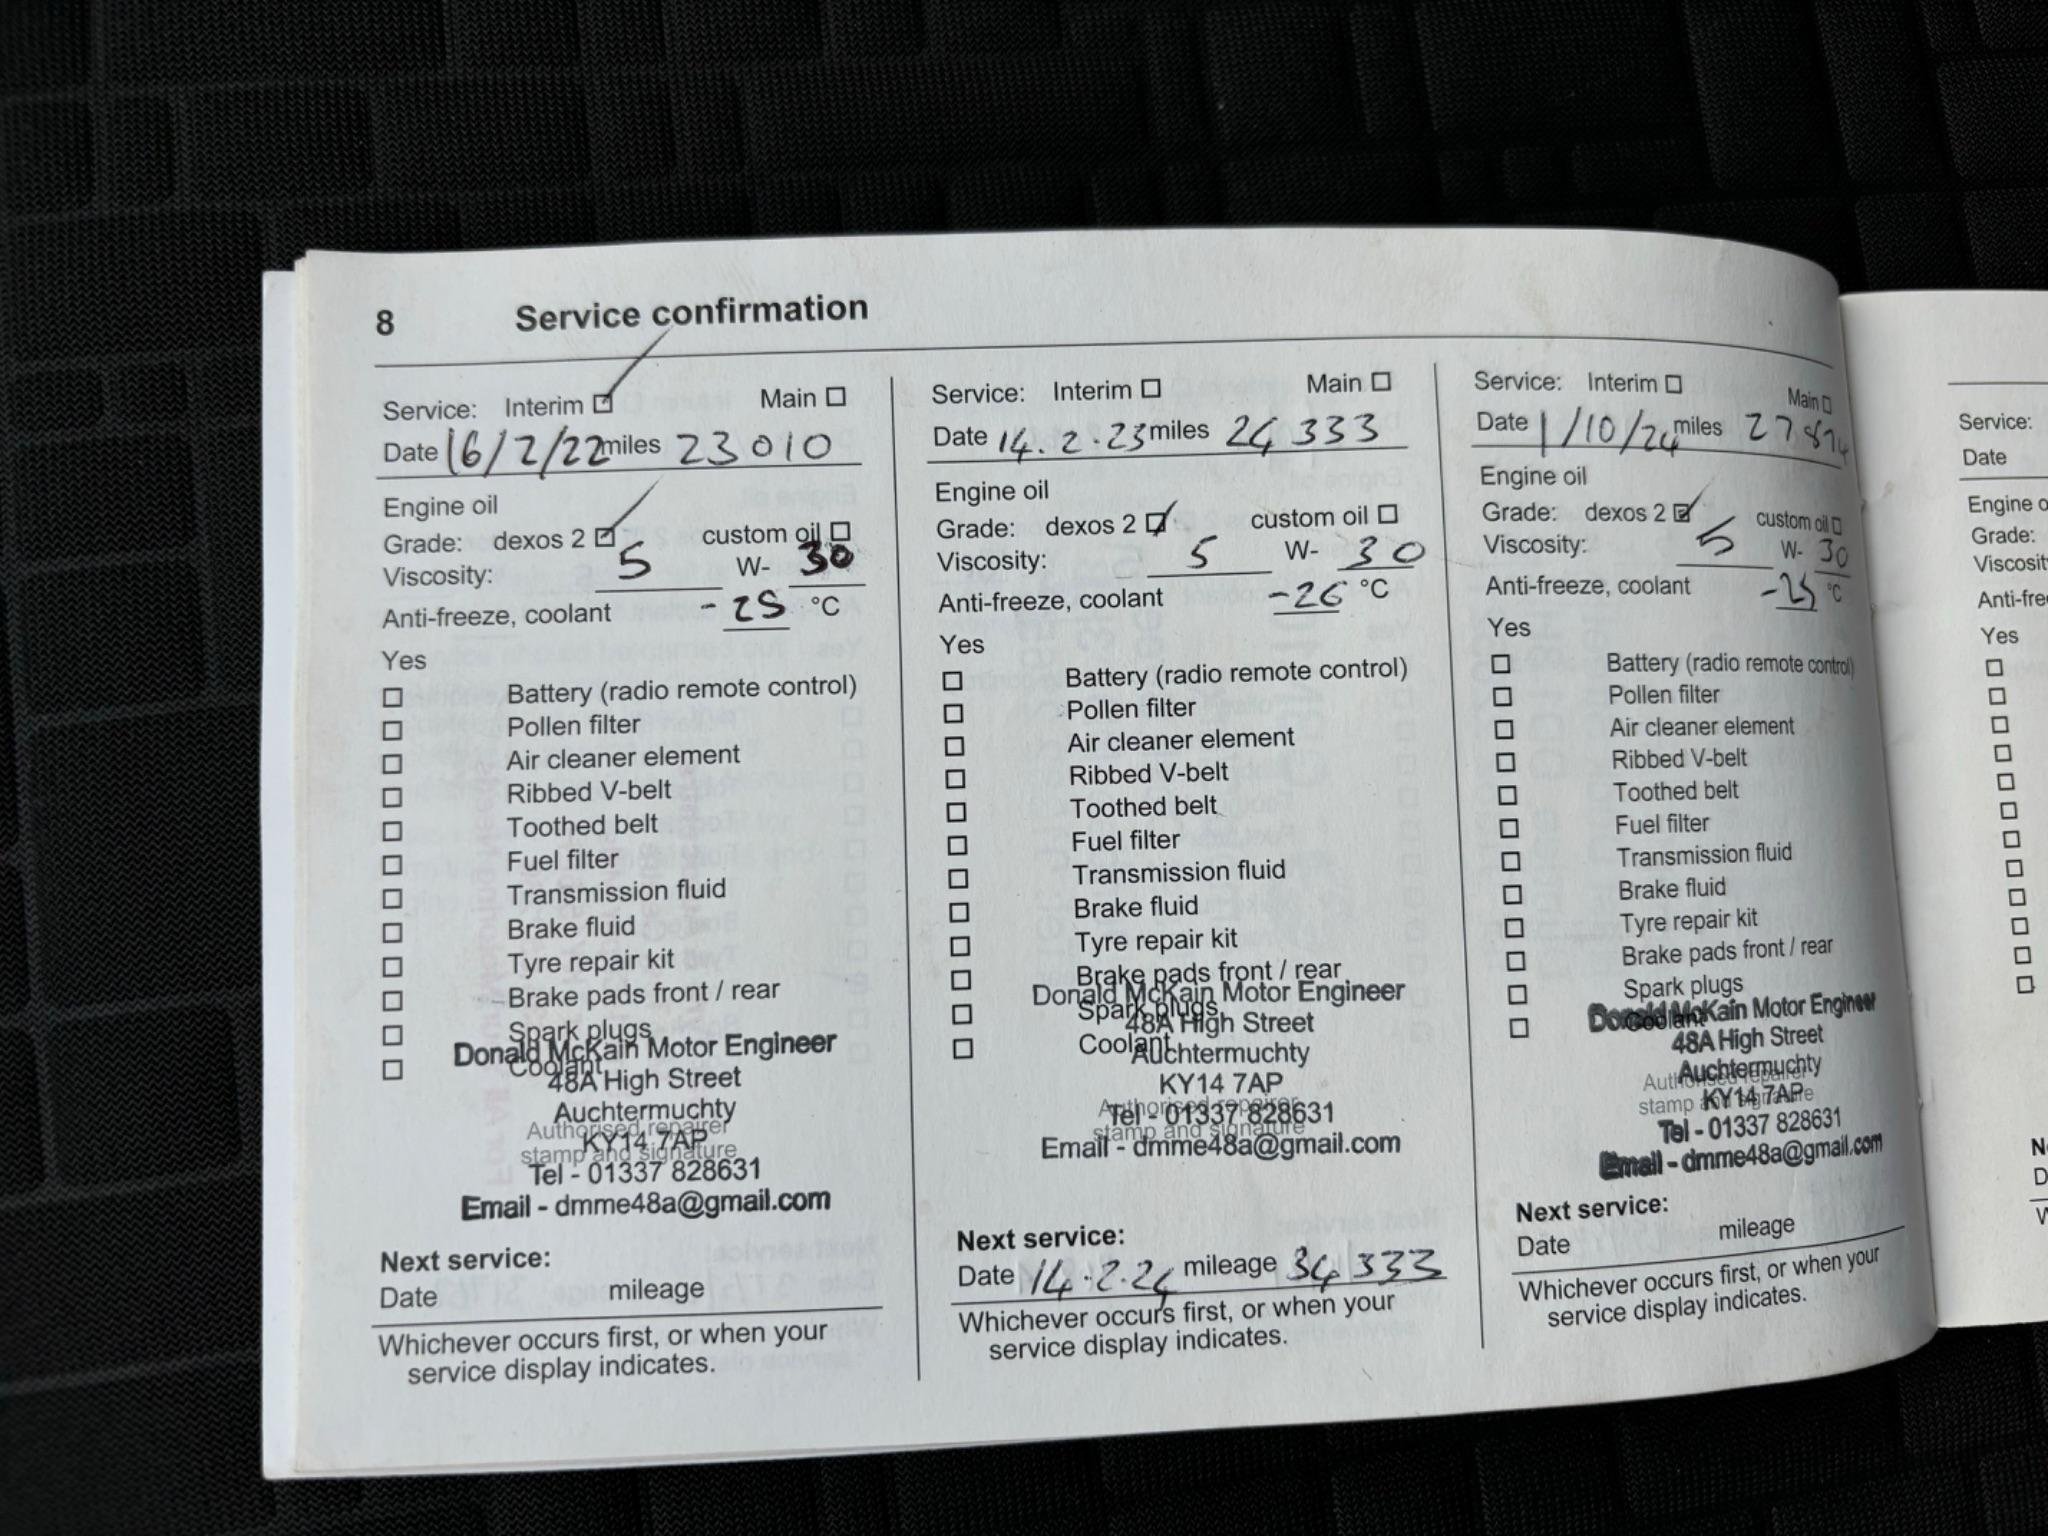 8 Service confirmation
Service: Interim Main
Date 16/2/22 miles 23010
Engine oil
Grade: dexos 2 custom oil
Viscosity: 5 W- 30
Anti-freeze, coolant -25 °C
Yes
Battery (radio remote control)
Pollen filter
Air cleaner element
Ribbed V-belt
Toothed belt
Fuel filter
Transmission fluid
Brake fluid
Tyre repair kit
Brake pads front / rear
Spark plugs
Donald McKain Motor Engineer
Coolant
48A High Street
Auchtermuchty
Authorised repairer
KY14 7AP
stamp and signature
Tel - 01337 828631
Email - dmme48a@gmail.com
Next service:
Date mileage
Whichever occurs first, or when your
service display indicates.
Service: Interim Main
Date 14.2.23 miles 24333
Engine oil
Grade: dexos 2 custom oil
Viscosity: 5 W- 30
Anti-freeze, coolant -26 °C
Yes
Battery (radio remote control)
Pollen filter
Air cleaner element
Ribbed V-belt
Toothed belt
Fuel filter
Transmission fluid
Brake fluid
Tyre repair kit
Brake pads front / rear
Donald McKain Motor Engineer
Spark plugs
48A High Street
Coolant
Auchtermuchty
KY14 7AP
Authorised repairer
Tel - 01337 828631
stamp and signature
Email - dmme48a@gmail.com
Next service:
Date 14.2.24 mileage 34333
Whichever occurs first, or when your
service display indicates.
Service: Interim Main
Date 1/10/24 miles 27874
Engine oil
Grade: dexos 2 custom oil
Viscosity: 5 W- 30
Anti-freeze, coolant -25 °C
Yes
Battery (radio remote control)
Pollen filter
Air cleaner element
Ribbed V-belt
Toothed belt
Fuel filter
Transmission fluid
Brake fluid
Tyre repair kit
Brake pads front / rear
Spark plugs
Donald McKain Motor Engineer
Coolant
48A High Street
Auchtermuchty
Authorised repairer
KY14 7AP
stamp and signature
Tel - 01337 828631
Email - dmme48a@gmail.com
Next service:
Date mileage
Whichever occurs first, or when your
service display indicates.
Service:
Date
Engine
Grade:
Yes